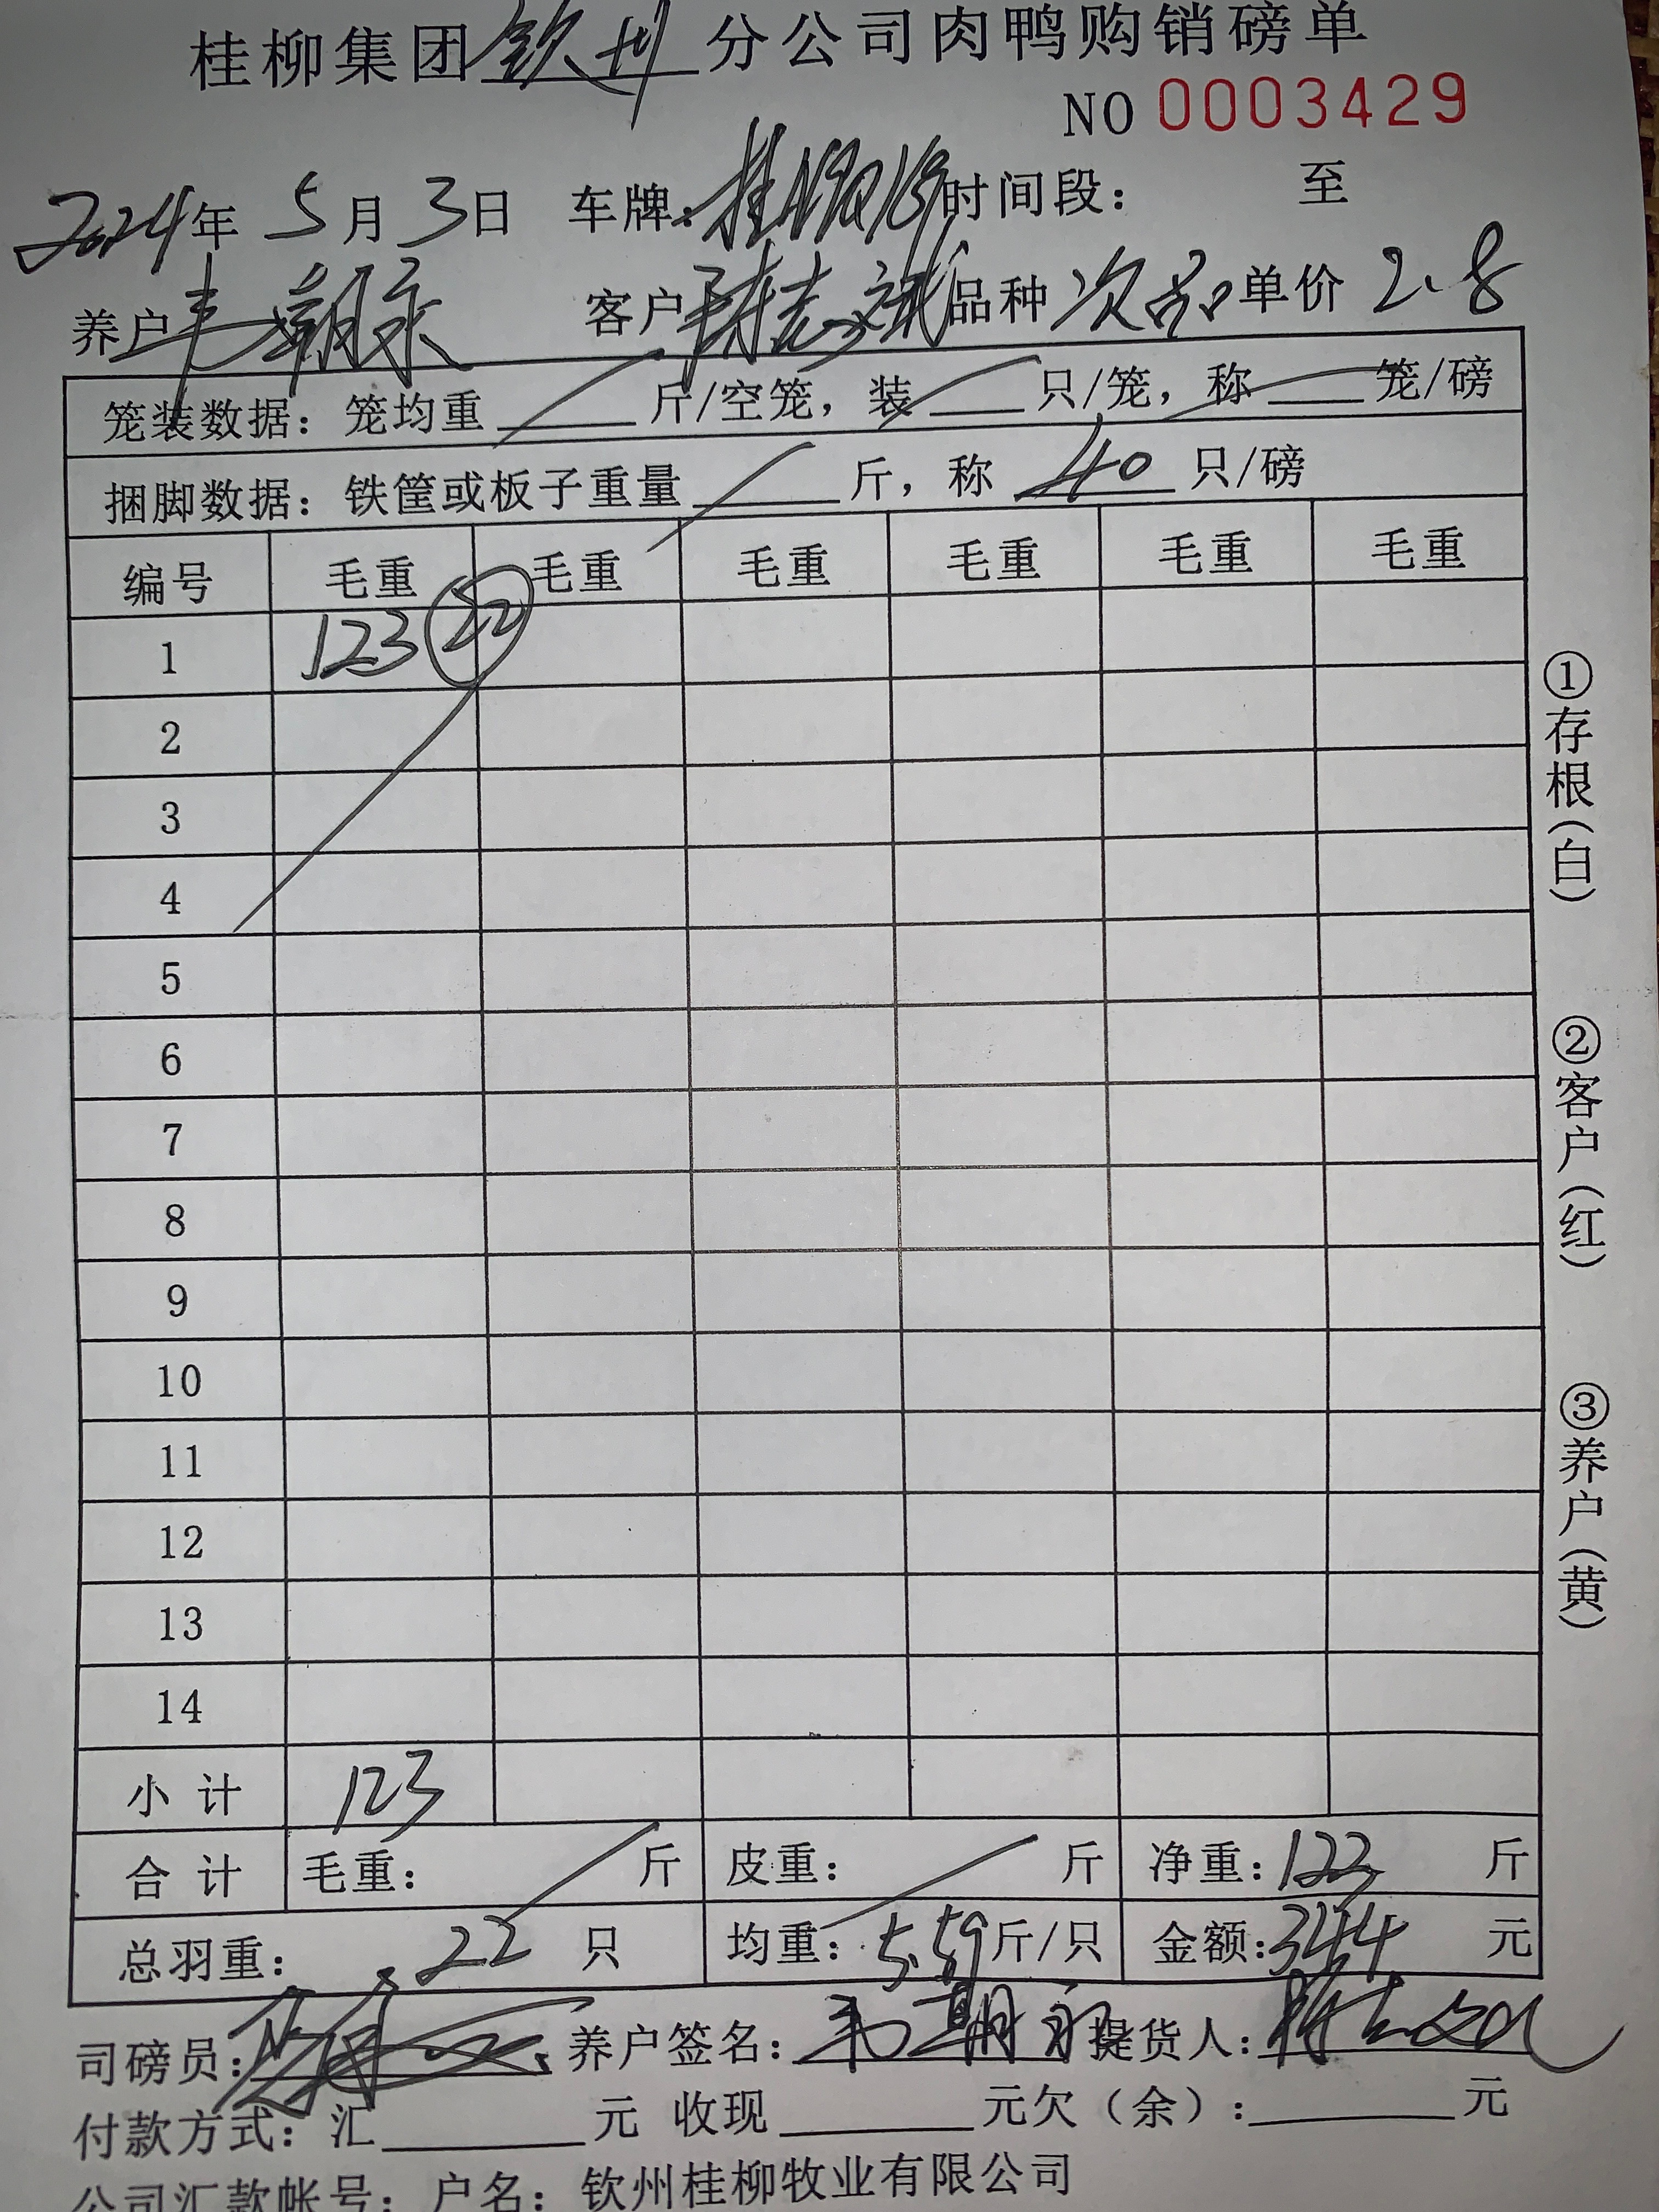 桂柳集团钦州分公司肉鸭购销磅单
NO 0003429
2024年 5月 3日 车牌: 时间段: 至
养户 韦朝永 客户 陈志斌 品种 次品 单价 2.8
笼装数据: 笼均重 斤/空笼, 装 只/笼, 称 笼/磅
捆脚数据: 铁筐或板子重量 斤, 称 40 只/磅
编号 毛重 毛重 毛重 毛重 毛重 毛重
1 123 22
2
3
4
5
6
7
8
9
10
11
12
13
14
小计 123
合计 毛重: 斤 皮重: 斤 净重: 123 斤
总羽重: 22 只 均重: 5.59 斤/只 金额: 344 元
司磅员: 养户签名: 韦朝永 提货人: 陈志斌
付款方式: 汇 元 收现 元欠(余): 元
公司汇款帐号: 户名: 钦州桂柳牧业有限公司
①存根(白)
②客户(红)
③养户(黄)